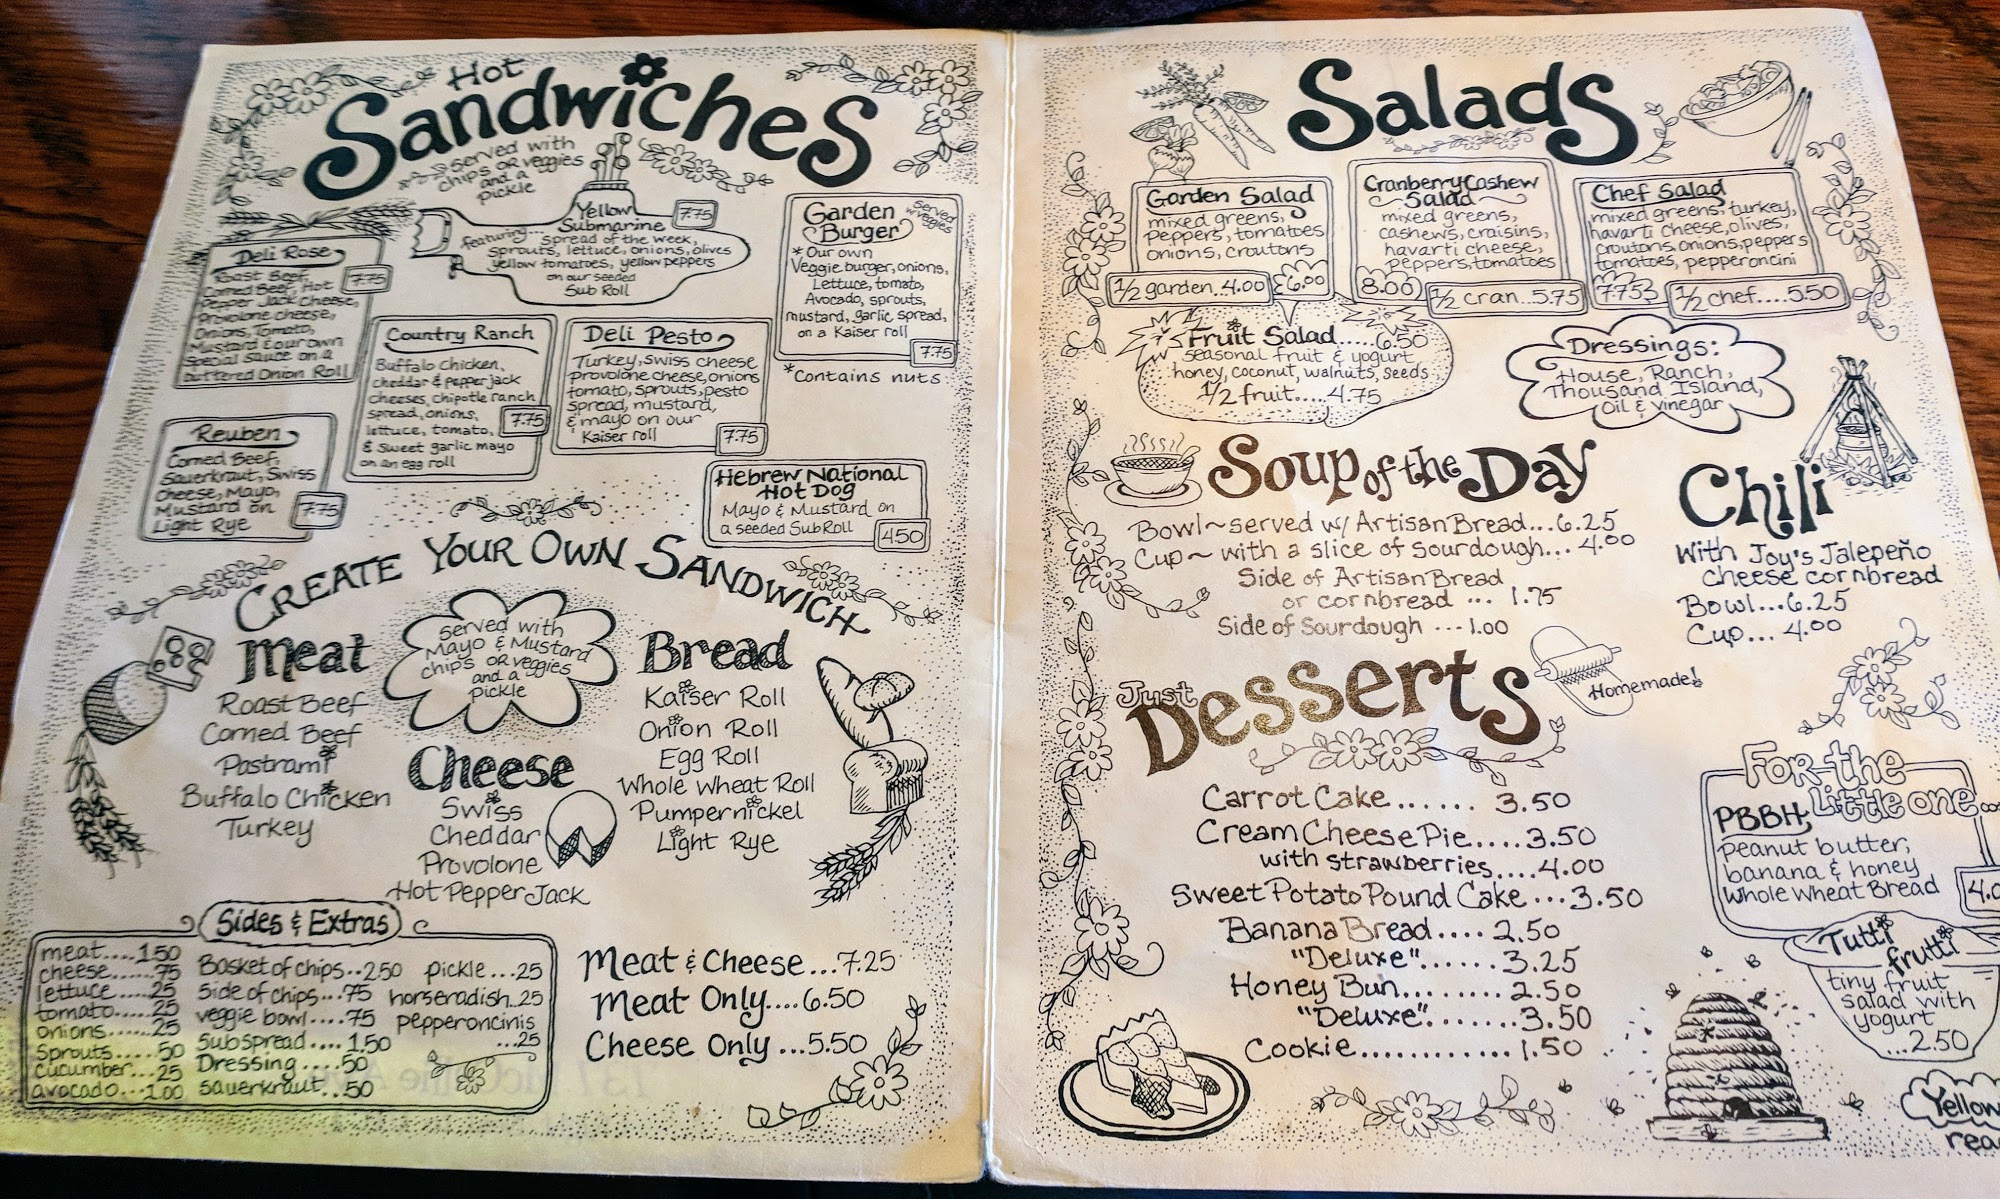 Hot
Sandwiches
served with
chips or veggies
and a
pickle
Yellow
Submarine
7.75
featuring...
spread of the week,
sprouts, lettuce, onions, olives
yellow tomatoes, yellow peppers
on our seeded
Sub Roll
Garden
Burger
served
w/veggies
* Our own
Veggie burger, onions,
Lettuce, tomato,
Avocado, sprouts,
mustard, garlic spread,
on a Kaiser roll
7.75
*Contains nuts
Deli Rose
Roast Beef,
Corned Beef, Hot
Pepper Jack Cheese,
Provolone cheese,
Onions, Tomato,
Mustard & our own
Special sauce on a
buttered Onion Roll
7.75
Country Ranch
Buffalo chicken,
cheddar & pepper jack
cheeses, chipotle ranch
spread, onions,
lettuce, tomato,
& sweet garlic mayo
on an egg roll
7.75
Deli Pesto
Turkey, swiss cheese
provolone cheese, onions
tomato, sprouts, pesto
spread, mustard,
& mayo on our
Kaiser roll
7.75
Reuben
Corned Beef,
Sauerkraut, Swiss
cheese, Mayo,
Mustard on
Light Rye
7.75
Hebrew National
Hot Dog
Mayo & Mustard on
a seeded Sub Roll
4.50
Create Your Own Sandwich
Meat
Roast Beef
Corned Beef
Pastrami
Buffalo Chicken
Turkey
served with
Mayo & Mustard
chips or veggies
and a
pickle
Cheese
Swiss
Cheddar
Provolone
Hot Pepper Jack
Bread
Kaiser Roll
Onion Roll
Egg Roll
Whole Wheat Roll
Pumpernickel
Light Rye
Sides & Extras
meat....1.50
cheese.....75
lettuce.....25
tomato.....25
onions......25
sprouts.....50
cucumber...25
avocado...1.00
Basket of chips..2.50
side of chips...75
veggie bowl....75
sub spread....1.50
Dressing....50
sauerkraut..50
pickle...25
horseradish..25
pepperoncinis
...25
Meat & Cheese...7.25
Meat Only....6.50
Cheese Only...5.50
Salads
Garden Salad
mixed greens,
Peppers, tomatoes
onions, croutons
1/2 garden...4.00
6.00
Cranberry Cashew
Salad
mixed greens,
cashews, craisins,
havarti cheese,
peppers, tomatoes
8.00
1/2 cran...5.75
Chef Salad
mixed greens, turkey,
havarti cheese, olives,
croutons, onions, peppers
tomatoes, pepperoncini
7.75
1/2 chef....5.50
Fruit Salad.....6.50
seasonal fruit & yogurt
honey, coconut, walnuts, seeds
1/2 fruit....4.75
Dressings:
House, Ranch,
Thousand Island,
Oil & vinegar
Soup of the Day
Bowl~served w/ Artisan Bread...6.25
Cup~ with a slice of sourdough...4.00
Side of Artisan Bread
or cornbread ... 1.75
Side of Sourdough ...1.00
Chili
With Joy's Jalepeño
Cheese cornbread
Bowl...6.25
Cup....4.00
Just
Desserts
Homemade!
Carrot Cake...... 3.50
Cream Cheese Pie....3.50
with strawberries....4.00
Sweet Potato Pound Cake...3.50
Banana Bread....2.50
"Deluxe"......3.25
Honey Bun........2.50
"Deluxe".......3.50
Cookie............1.50
For the
Little one...
PBBH
peanut butter,
banana & honey
whole wheat Bread
Tutti
frutti
tiny fruit
salad with
yogurt
...2.50
Yellow